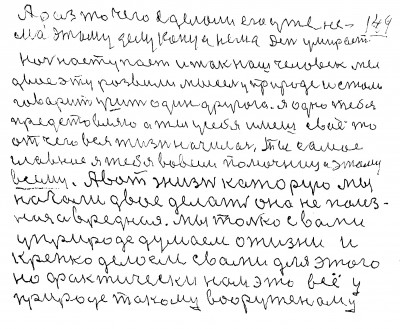 А раз то чего сделали его уже не- 149
ма этому делу конца нема Ден умирает.
Ноч наступает и так наш человек мы
двое эту розвили мысель у природе и стали
говарит учит один другога. я одно тебя
представляю а ты у себя имеш своё то
от чего вся жизн началас, ты самое
главние я тебя вовсем помочниц и этому
всему. А вот жизн каторую мы
начали двое делать она не полз-
ная а вредная. мы толко с вами
у природе думаем о жизни и
крепко делоем с вами для этого
но фрактически нам это всё у
природе такому вооруженаму